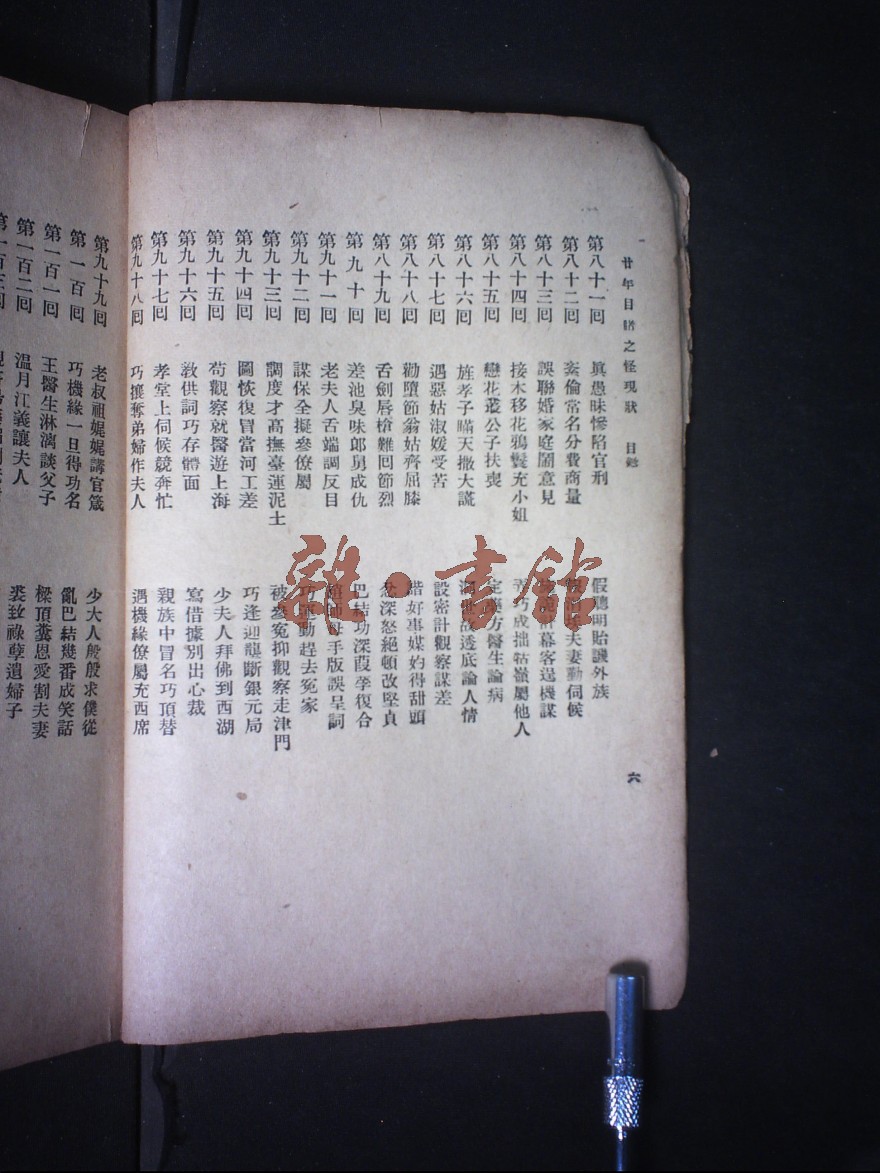 廿年目睹之怪現狀 目錄 六
第八十一回 眞愚昧慘陷官刑 假聰明貽譏外族
第八十二回 紊倫常名分費商量 夫妻勤伺候
第八十三回 誤聯婚家庭鬧意見 幕客逞機謀
第八十四回 接木移花鴉鬟充小姐 弄巧成拙牯嶺屬他人
第八十五回 戀花叢公子扶喪 定藥方醫生論病
第八十六回 旌孝子瞞天撒大謊 洞世故透底論人情
第八十七回 遇惡姑淑媛受苦 設密計觀察謀差
第八十八回 勸墮節翁姑齊屈膝 諧好事媒妁得甜頭
第八十九回 舌劍唇槍難回節烈 忿深怒絕頓改堅貞
第九十回 差池臭味郎舅成仇 巴結功深葭莩復合
第九十一回 老夫人舌端調反目 師母手版誤呈詞
第九十二回 謀保全擬參僚屬 巧運動趕去冤家
第九十三回 調度才高撫臺運泥土 被參冤抑觀察走津門
第九十四回 圖恢復冒當河工差 巧逢迎壟斷銀元局
第九十五回 苟觀察就醫遊上海 少夫人拜佛到西湖
第九十六回 教供詞巧存體面 寫借據別出心裁
第九十七回 孝堂上伺候競奔忙 親族中冒名巧頂替
第九十八回 巧攘奪弟婦作夫人 遇機緣僚屬充西席
第九十九回 老叔祖娓娓講官箴 少大人殷殷求僕從
第一百回 巧機緣一旦得功名 亂巴結幾番成笑話
第一百一回 王醫生淋漓談父子 樑頂糞恩愛割夫妻
第一百二回 溫月江義讓夫人 裘致祿孽遺婦子
第一百三回
雜·書館